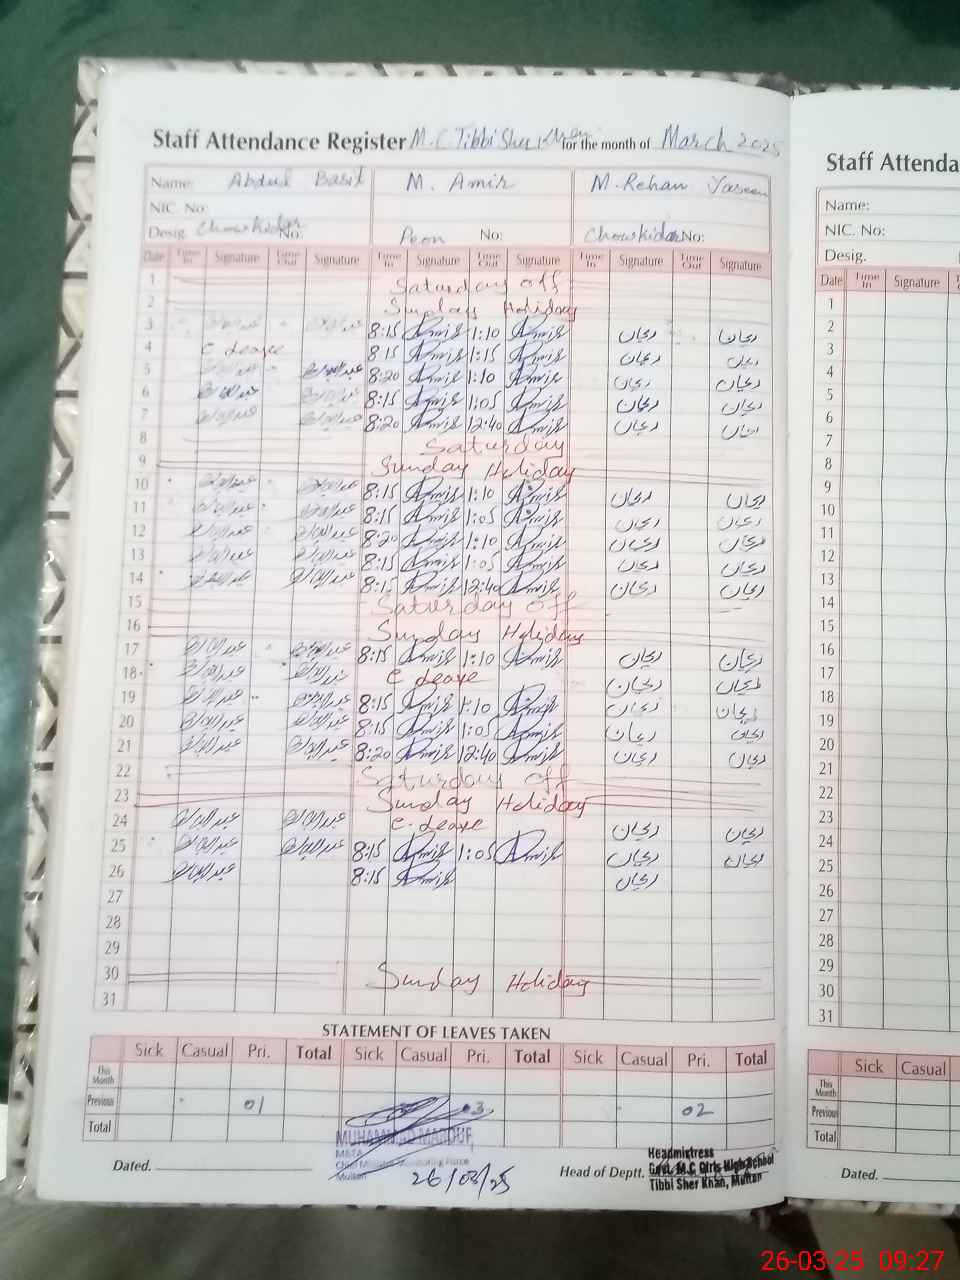 Staff Attendance Register M.C. Tibbi Sher Khan for the month of March 2025
Name: Abdul Basit M. Amir M. Rehan Yaseen
NIC. No:
Desig. Chowkidar No: Peon No: Chowkidar No:
Date Time In Signature Time Out Signature Time In Signature Time Out Signature Time In Signature Time Out Signature
1 Saturday off
2 Sunday Holiday
3 عبدالباسط عبدالباسط 8:15 Amir 1:10 Amir ریحان ریحان
4 C leave 8:15 Amir 1:15 Amir ریحان ریحان
5 عبدالباسط عبدالباسط 8:20 Amir 1:10 Amir ریحان ریحان
6 عبدالباسط عبدالباسط 8:15 Amir 1:05 Amir ریحان ریحان
7 عبدالباسط عبدالباسط 8:20 Amir 12:40 Amir ریحان ریحان
8 Saturday
9 Sunday Holiday
10 عبدالباسط عبدالباسط 8:15 Amir 1:10 Amir ریحان ریحان
11 عبدالباسط عبدالباسط 8:15 Amir 1:05 Amir ریحان ریحان
12 عبدالباسط عبدالباسط 8:20 Amir 1:10 Amir ریحان ریحان
13 عبدالباسط عبدالباسط 8:15 Amir 1:05 Amir ریحان ریحان
14 عبدالباسط عبدالباسط 8:15 Amir 12:40 Amir ریحان ریحان
15 Saturday off
16 Sunday Holiday
17 عبدالباسط عبدالباسط 8:15 Amir 1:10 Amir ریحان ریحان
18 عبدالباسط عبدالباسط C leave ریحان ریحان
19 عبدالباسط عبدالباسط 8:15 Amir 1:10 Amir ریحان ریحان
20 عبدالباسط عبدالباسط 8:15 Amir 1:05 Amir ریحان ریحان
21 عبدالباسط عبدالباسط 8:20 Amir 12:40 Amir ریحان ریحان
22 Saturday off
23 Sunday Holiday
24 عبدالباسط عبدالباسط C-leave ریحان ریحان
25 عبدالباسط عبدالباسط 8:15 Amir 1:05 Amir ریحان ریحان
26 عبدالباسط 8:15 Amir ریحان
27
28
29
30 Sunday Holiday
31
STATEMENT OF LEAVES TAKEN
Sick Casual Pri. Total Sick Casual Pri. Total Sick Casual Pri. Total
This Month
Previous 01 03 02
Total
MUHAMMAD MAROUF
MEA
Chief Minister Monitoring Force
Multan
26/03/25
Dated. Head of Deptt.
Headmistress
Govt. M.C Girls High School
Tibbi Sher Khan, Multan
Staff Attenda
Name:
NIC. No:
Desig.
Date Time In Signature
1
2
3
4
5
6
7
8
9
10
11
12
13
14
15
16
17
18
19
20
21
22
23
24
25
26
27
28
29
30
31
Sick Casual
This Month
Previous
Total
Dated.
26-03-25 09:27